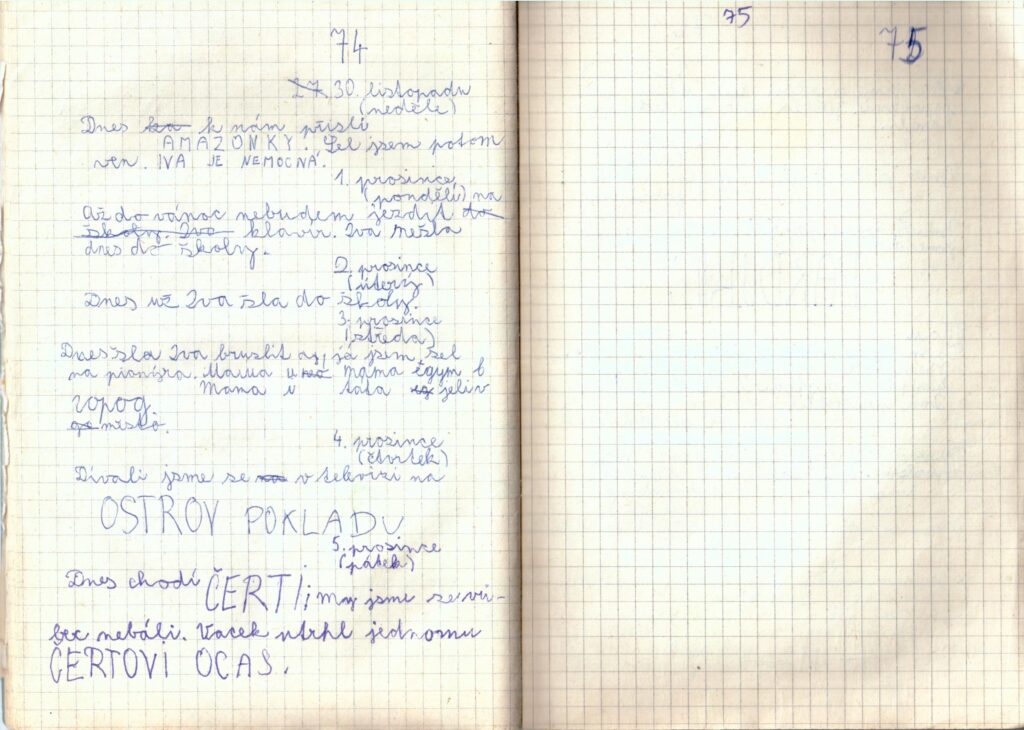 74
27. 30. listopadu
(neděle)
Dnes k nám přisli
AMAZONKY. Šel jsem potom
ven. IVA JE NEMOCNÁ.
1. prosince,
(pondělí) na
Až do vánoc nebudem jezdit do
školy. Iva klavír. Iva nešla
dnes do školny.
2. prosince
(úterý)
Dnes už Iva šla do školy.
3. prosince
(středa)
Dnes šla Iva bruslit a já jsem šel
na pionýra. Мама и мама едут в
Мама и táta jeli v
город.
místo.
4. prosince
(čtvrtek)
Dívali jsme se v televizi na
OSTROV POKLADU
5. prosince
(pátek)
Dnes chodí ČERTI i my jsme se vů-
bec nebáli. Vacek utrhl jednomu
ČERTOVI OCAS.
75
75